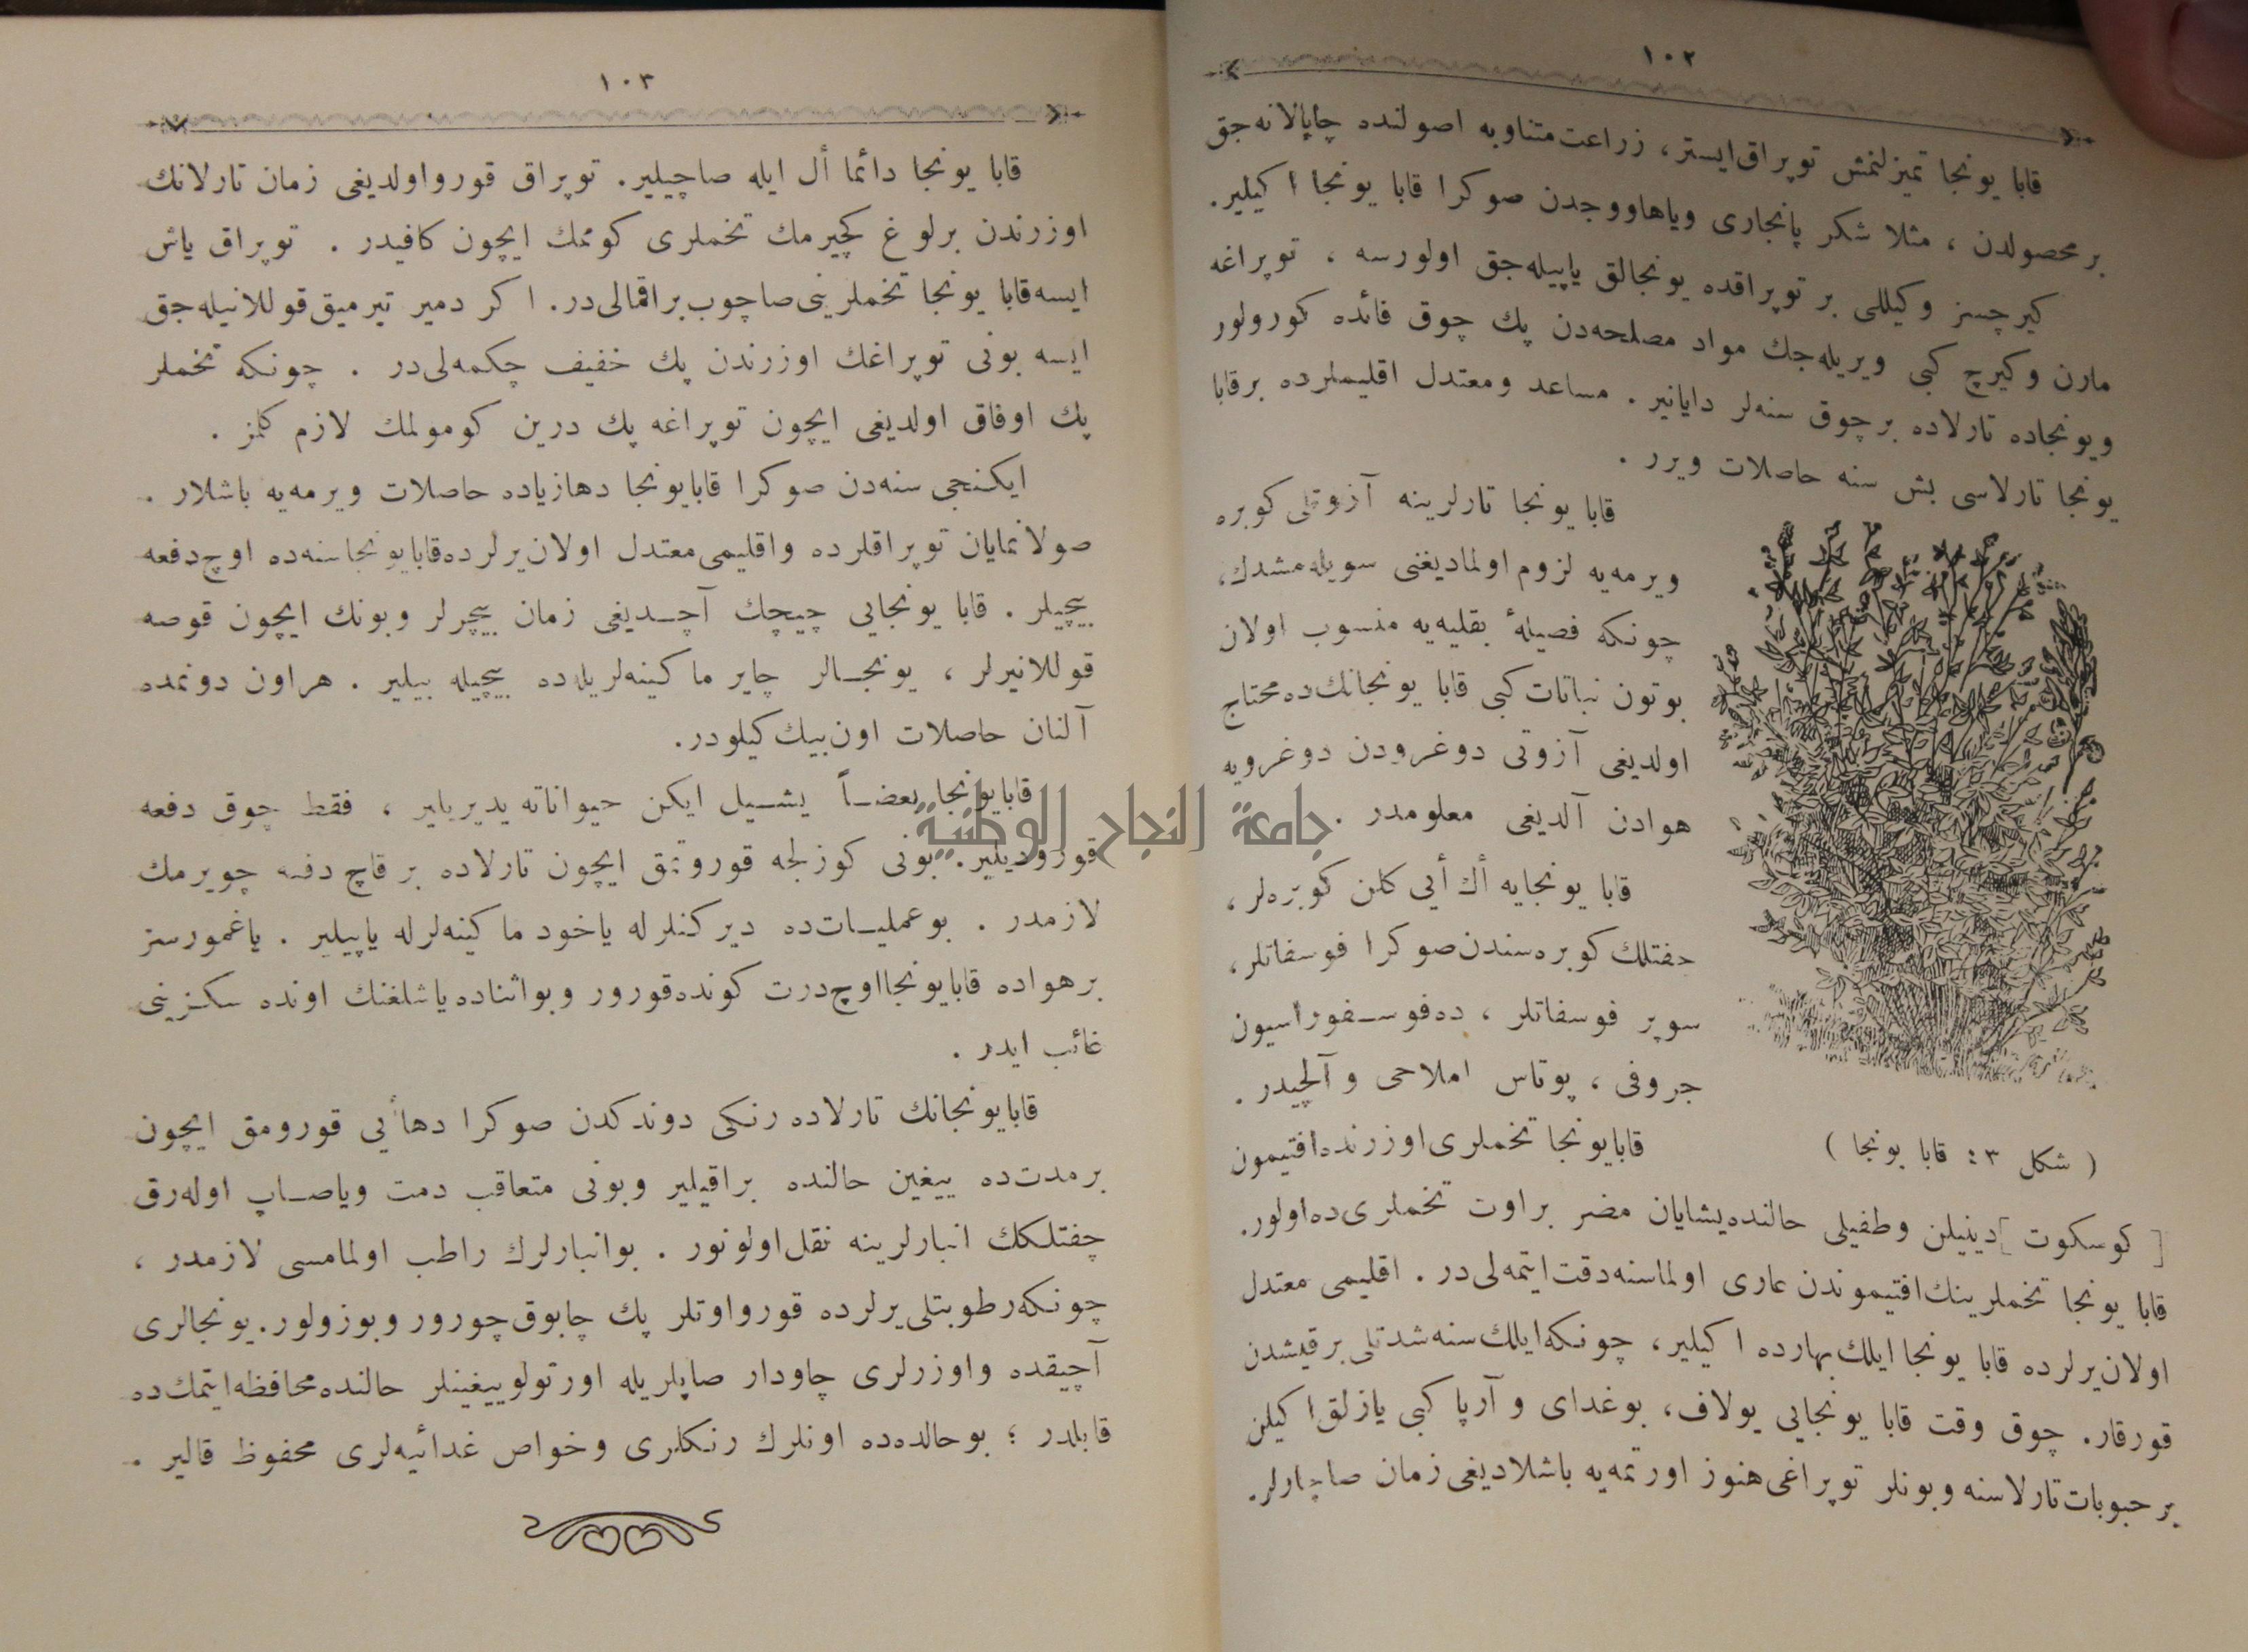 ١٠٢
قابا یونجا تمیزلنمش توپراق ایستر، زراعت متناوبه اصولنده چاپالانه‌جق
بر محصولدن ، مثلا شکر پانجاری ویا هاووجدن صوکرا قابا یونجا اکیلیر.
کیرچسز وکیللی بر توپراقده یونجالق یاپیله‌جق اولورسه ، توپراغه
مارن وکیرچ کبی ویریله‌جك مواد مصلحه‌دن پك چوق فائده کورولور
ویونجاده تارلاده برچوق سنه‌لر دایانیر . مساعد ومعتدل اقلیملرده برقابا
یونجا تارلاسی بش سنه حاصلات ویرر .
قابا یونجا تارلرینه آزوتلی کوبره
ویرمه‌یه لزوم اولمادیغنی سویله‌مشدك،
چونکه فصیلهٔ بقلیه‌یه منسوب اولان
بوتون نباتات کبی قابا یونجانك‌ده محتاج
اولدیغی آزوتی دوغرودن دوغرویه
هوادن آلدیغی معلومدر .
قابا یونجایه أك أیی کلن کوبره‌لر ،
چفتلك کوبره‌سندن صوکرا فوسفاتلر،
سوپر فوسفاتلر ، ده‌فوسفوراسیون
جروفی ، پوتاس املاحی و آلچیدر .
( شکل ٣ : قابا یونجا )
قابایونجا تخملری اوزرنده افتیمون
[ کوسکوت ] دینیلن وطفیلی حالنده یشایان مضر براوت تخملری‌ده اولور.
قابا یونجا تخملرینك افتیموندن عاری اولماسنه دقت ایتمه‌لی‌در . اقلیمی معتدل
اولان یرلرده قابا یونجا ایلك بهارده اکیلیر، چونکه ایلك سنه شدتلی برقیشدن
قورقار. چوق وقت قابا یونجایی یولاف، بوغدای و آرپا کبی یازلق اکیلن
بر حبوبات تارلاسنه وبونلر توپراغی هنوز اورتمه‌یه باشلادیغی زمان صاچارلر.
١٠٣
قابا یونجا دائما أل ایله صاچیلیر. توپراق قورو اولدیغی زمان تارلانك
اوزرندن برلوغ کچیرمك تخملری کوممك ایچون کافیدر . توپراق یاش
ایسه قابا یونجا تخملرینی صاچوب براقمالی‌در. اکر دمیر تیرمیق قوللانیله‌جق
ایسه بونی توپراغك اوزرندن پك خفیف چکمه‌لی‌در . چونکه تخملر
پك اوفاق اولدیغی ایچون توپراغه پك درین کومولمك لازم کلمز .
ایکنجی سنه‌دن صوکرا قابایونجا دها زیاده حاصلات ویرمه‌یه باشلار .
صولانمایان توپراقلرده واقلیمی معتدل اولان یرلرده قابایونجا سنه‌ده اوچ دفعه
بیچیلر . قابا یونجایی چیچك آچدیغی زمان بیچرلر وبونك ایچون قوصه
قوللانیرلر ، یونجالر چایر ماکینه‌لریله‌ده بیچیله بیلیر . هراون دونمده
آلنان حاصلات اون‌بیك کیلودر.
قابایونجا بعضاً یشیل ایکن حیواناته یدیریلیر ، فقط چوق دفعه
قورودیلیر. بونی کوزلجه قوروتمق ایچون تارلاده بر قاچ دفعه چویرمك
لازمدر . بوعملیات‌ده دیرکنلرله یاخود ماکینه‌لرله یاپیلیر . یاغمورسز
برهواده قابایونجا اوچ درت کونده قورور وبواثناده یاشلغنك اونده سکزینی
غائب ایدر .
قابایونجانك تارلاده رنکی دوندکدن صوکرا دها أیی قورومق ایچون
برمدت‌ده ییغین حالنده براقیلیر وبونی متعاقب دمت ویاصاپ اوله‌رق
چفتلکك انبارلرینه نقل اولونور . بوانبارلرك راطب اولمامسی لازمدر ،
چونکه رطوبتلی یرلرده قورو اوتلر پك چابوق چورور وبوزولور. یونجالری
آچیقده واوزرلری چاودار صاپلریله اورتولو ییغینلر حالنده محافظه ایتمك‌ده
قابلدر ؛ بوحالده‌ده اونلرك رنکلری وخواص غدائیه‌لری محفوظ قالیر .
جامعة النجاح الوطنية